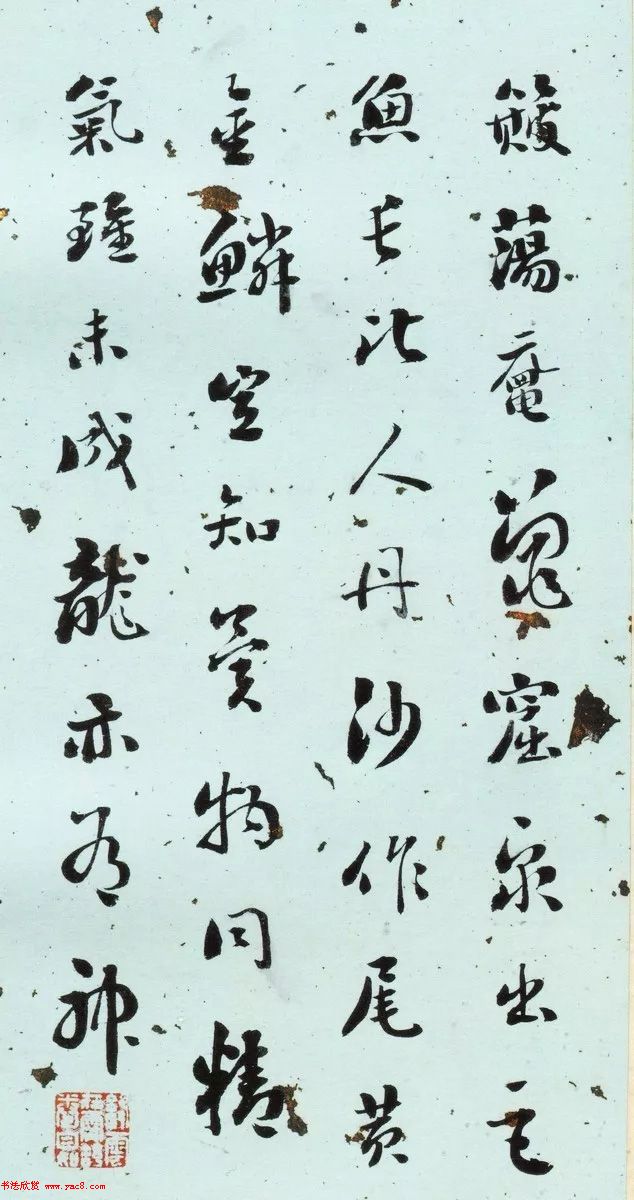 簸蕩黿鼉窟泉出巨
魚長比人丹沙作尾黄
金鱗豈知異物同精
氣雖未成龍亦有神
书法欣赏 www.yac8.com